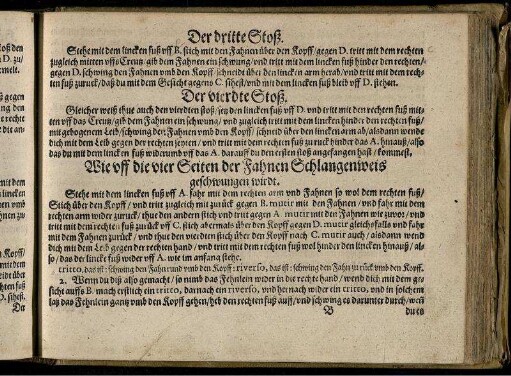 Der dritte Stoß.
Stehe mit dem lincken fuß vff B. stich mit den Fahnen über den Kopff/ gegen D. tritt mit dem rechten
zugleich mitten vffs Creutz/ gib dem Fahnen ein schwung/ vnd tritt mit dem lincken fuß hinder den rechten/
gegen D. schwing den Fahnen vmb den Kopff/ schneidt über den lincken arm herab/ vnd tritt mit dem rech-
ten fuß zurück/ daß du mit dem Gesicht gegens C. sihest/ vnd mit dem lincken fuß bleib vff D. stehen.
Der vierdte Stoß.
Gleicher weiß thue auch den vierdten stoß/ setz den lincken fuß vff D. vnd tritt mit den rechten fuß mit-
ten vff das Creutz/ gib dem Fahnen ein schwung/ vnd zugleich tritt mit dem lincken hinder den rechten fuß/
mit gebogenem Leib/ schwing den Fahnen vmb den Kopff/ schneid über den lincken arm ab/ alsdann wende
dich mit dem Leib gegen der rechten seyten/ vnd tritt mit dem rechten fuß zurück hinder das A. hinauß/ also
das du mit dem lincken fuß widerumb vff das A. darauff du den ersten stoß angefangen hast/ kommest.
Wie vff die vier Seiten der Fahnen Schlangenweis
geschwungen wirdt.
Stehe mit dem lincken fuß vff A. fahr mit dem rechten arm vnd Fahnen so wol dem rechten fuß/
Stich über den Kopff/ vnd tritt zugleich mit zurück gegen B. mutir mit den Fahnen/ vnd fahr mit dem
rechten arm wider zurück/ thue den andern stich vnd tritt gegen A. mutir mit den Fahnen wie zuvor/ vnd
tritt mit dem rechten fuß zurück vff C. stich abermals über den Kopff gegen D. mutir gleichsfalls vnd fahr
mit dem Fahnen zurück/ vnd thue den vierdten stich über den Kopff nach C. mutir auch/ alsdann wend
dich mit dem Leib gegen der rechten hand/ vnd tritt mit dem rechten fuß wol hinder den lincken hinauß/ al-
so/ das der lincke fuß wider vff A. wie im anfang stehe.
tritto, das ist: schwing den Fahn rund vmb den Kopff: riverso, das ist: schwing den Fahn zurück vmb den Kopff.
2. Wenn du diß also gemacht/ so nimb das Fehnlein wider in die rechte hand/ wend dich mit dem ge-
sicht auffs B. mach erstlich ein tritto, darnach ein riverso, vnd hernach wider ein tritto, vnd in solchem
laß das Fehnlein gantz vmb den Kopff gehen/ heb den rechten fuß auff/ vnd schwing es darunter durch/ weñ
B
du es